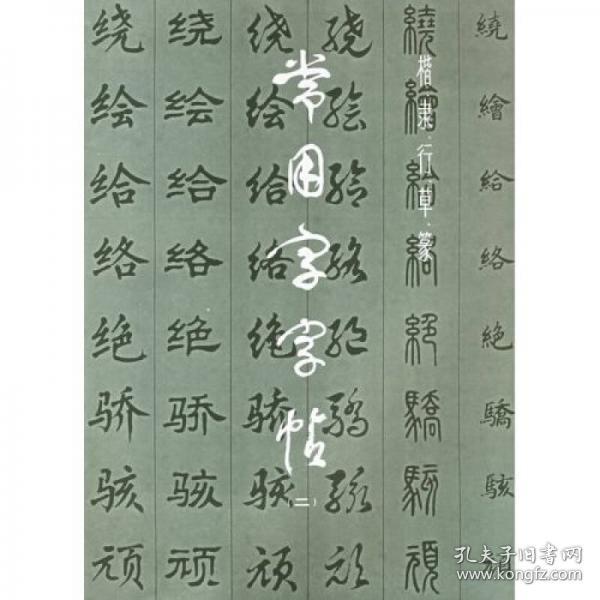 常用字字帖
（二）
楷·隶·行·草·篆
绕绘给络绝骄骇顽
绕绘给络绝骄骇顽
绕绘给络绝骄骇顽
绕绘给络绝骄骇顽
繞繪給絡絶驕駭頑
繞繪給絡絶驕駭頑
孔夫子旧书网
www.kongfz.com